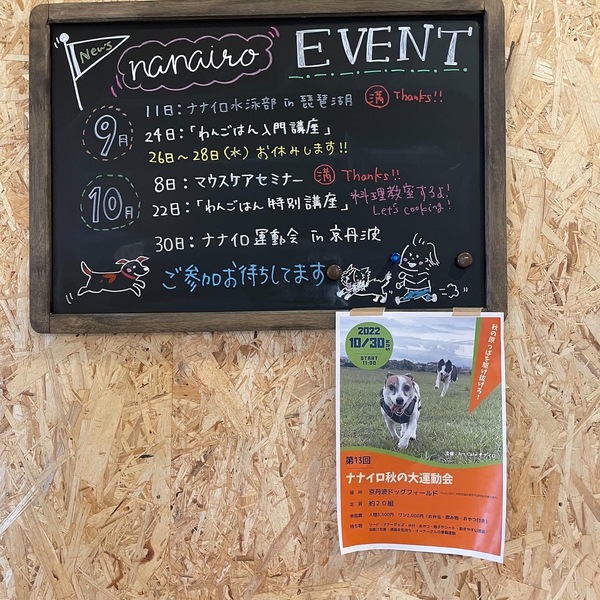 News
nanairo
EVENT
9月
11日：ナナイロ水泳部 in 琵琶湖 満 Thanks!!
24日：「わんごはん入門講座」
26日〜28日(水) お休みします!!
10月
8日：マウスケアセミナー 満 Thanks!!
22日：「わんごはん特別講座」 料理教室するよ!
Let's cooking!
30日：ナナイロ運動会 in 京丹波
ご参加お待ちしてます
2022
10/30 SUN
START
11:00
秋の原っぱを駆け抜けろ!
第13回
ナナイロ秋の大運動会
京丹波ドッグフィールド
定員 約20組
参加費
持ち物